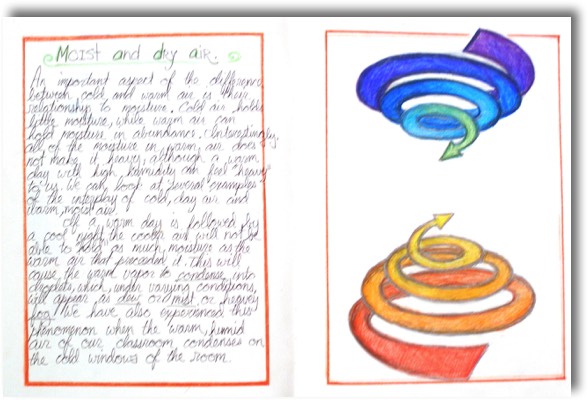 Moist and dry air.
An important aspect of the difference
between cold and warm air is their
relationship to moisture. Cold air holds
little moisture, while warm air can
hold moisture in abundance. Interestingly,
all of the moisture in warm air does
not make it heavier, although a warm
day with high humidity can feel "heavy"
to us. We can look at several examples
of the interplay of cold, dry air and
warm, moist air.
If a warm day is followed by
a cool night the cooler air will not be
able to "hold" as much moisture as the
warm air that preceded it. This will
cause the water vapor to condense into
droplets, which, under varying conditions,
will appear as dew or mist or heavy
fog. We have also experienced this
phenomenon when the warm, humid
air of our classroom condenses on
the cold windows of the room.